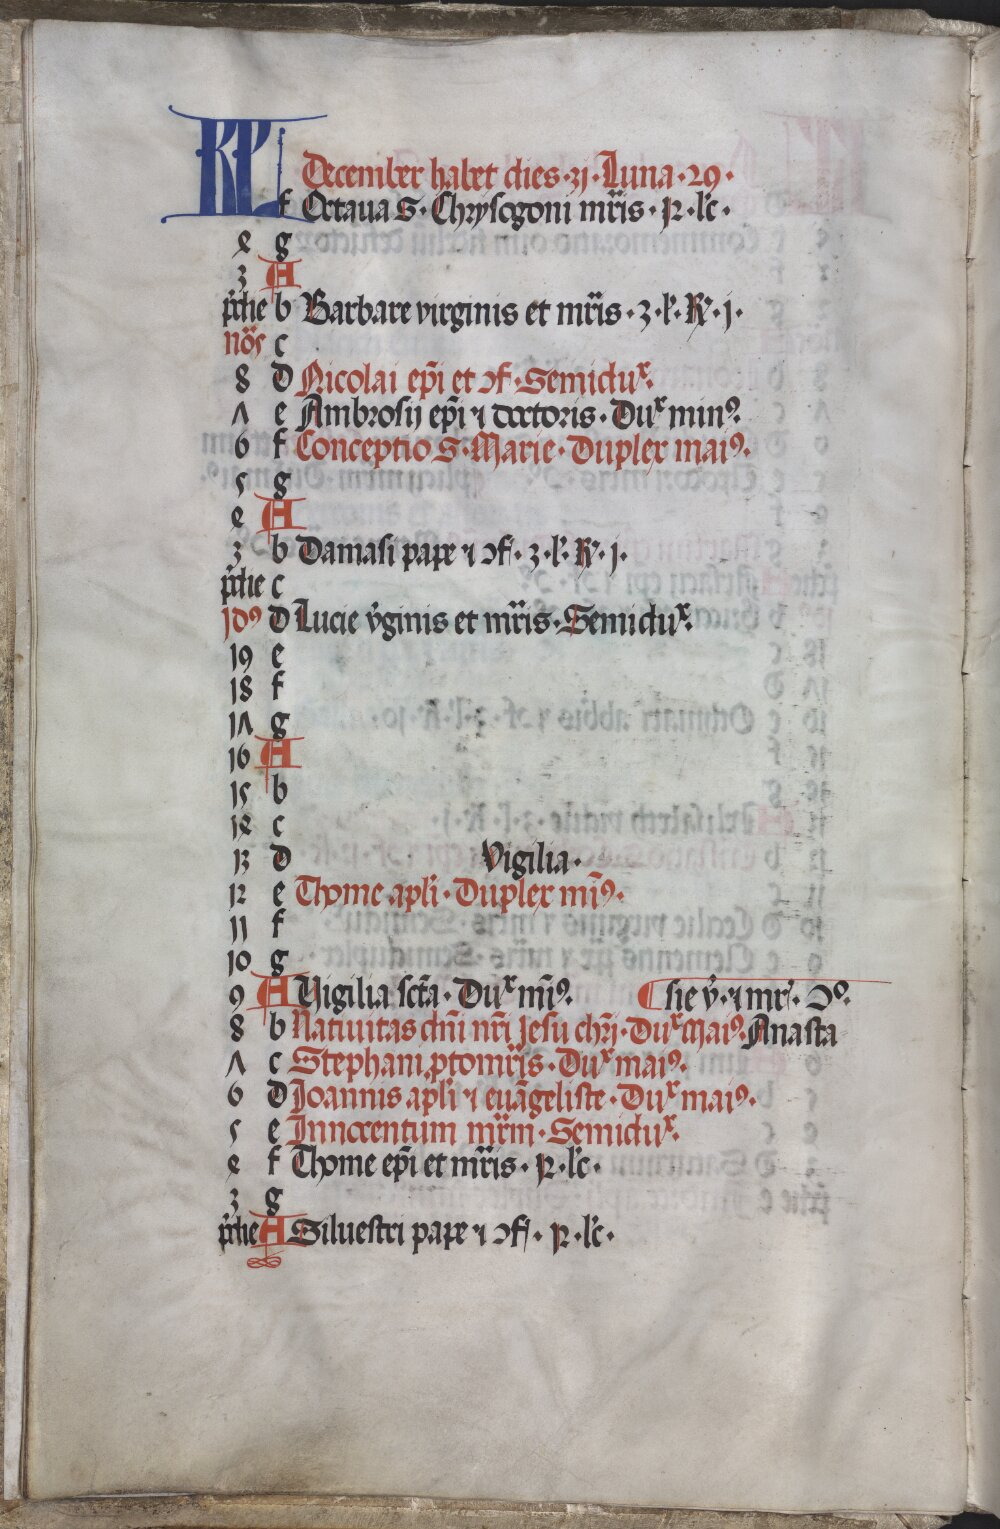 KL December habet dies · 31 · Luna · 29 ·
f Octaua S · Chrysogoni mr̃is · p · lc̃ ·
4 g
3 A
prĩdie b Barbare virginis et mr̃is · 3 · l · R · j ·
nõs c
8 d Nicolai ep̃i et ɔf · Semiduˣ ·
7 e Ambrosij ep̃i ⁊ doctoris · Duˣ minꝰ ·
6 f Conceptio S · Marie · Duplex maiꝰ ·
5 g
4 A
3 b Damasi pape ⁊ ɔf · 3 · l · R · j ·
prĩdie c
Idꝰ d Lucie ṽginis et mr̃is · Semiduˣ ·
19 e
18 f
17 g
16 A
15 b
14 c
13 d Vigilia ·
12 e Thome apl̃i · Duplex mĩꝰ ·
11 f
10 g
9 A Vigilia sct̃a · Duˣ mĩꝰ · sie ṽ · ⁊ mr̃ · ɔᵒ ·
8 b Natiuitas dñi nr̃i Jesu chr̃i · Duˣ Maiꝰ · Anasta
7 c Stephani ꝓtomr̃is · Duˣ maiꝰ ·
6 d Joannis apl̃i ⁊ euãgeliste · Duˣ maiꝰ ·
5 e Innocentum mr̃m · Semiduˣ ·
4 f Thome ep̃i et mr̃is · p · lc̃ ·
3 g
prĩdie A Siluestri pape ⁊ ɔf · p · lc̃ ·